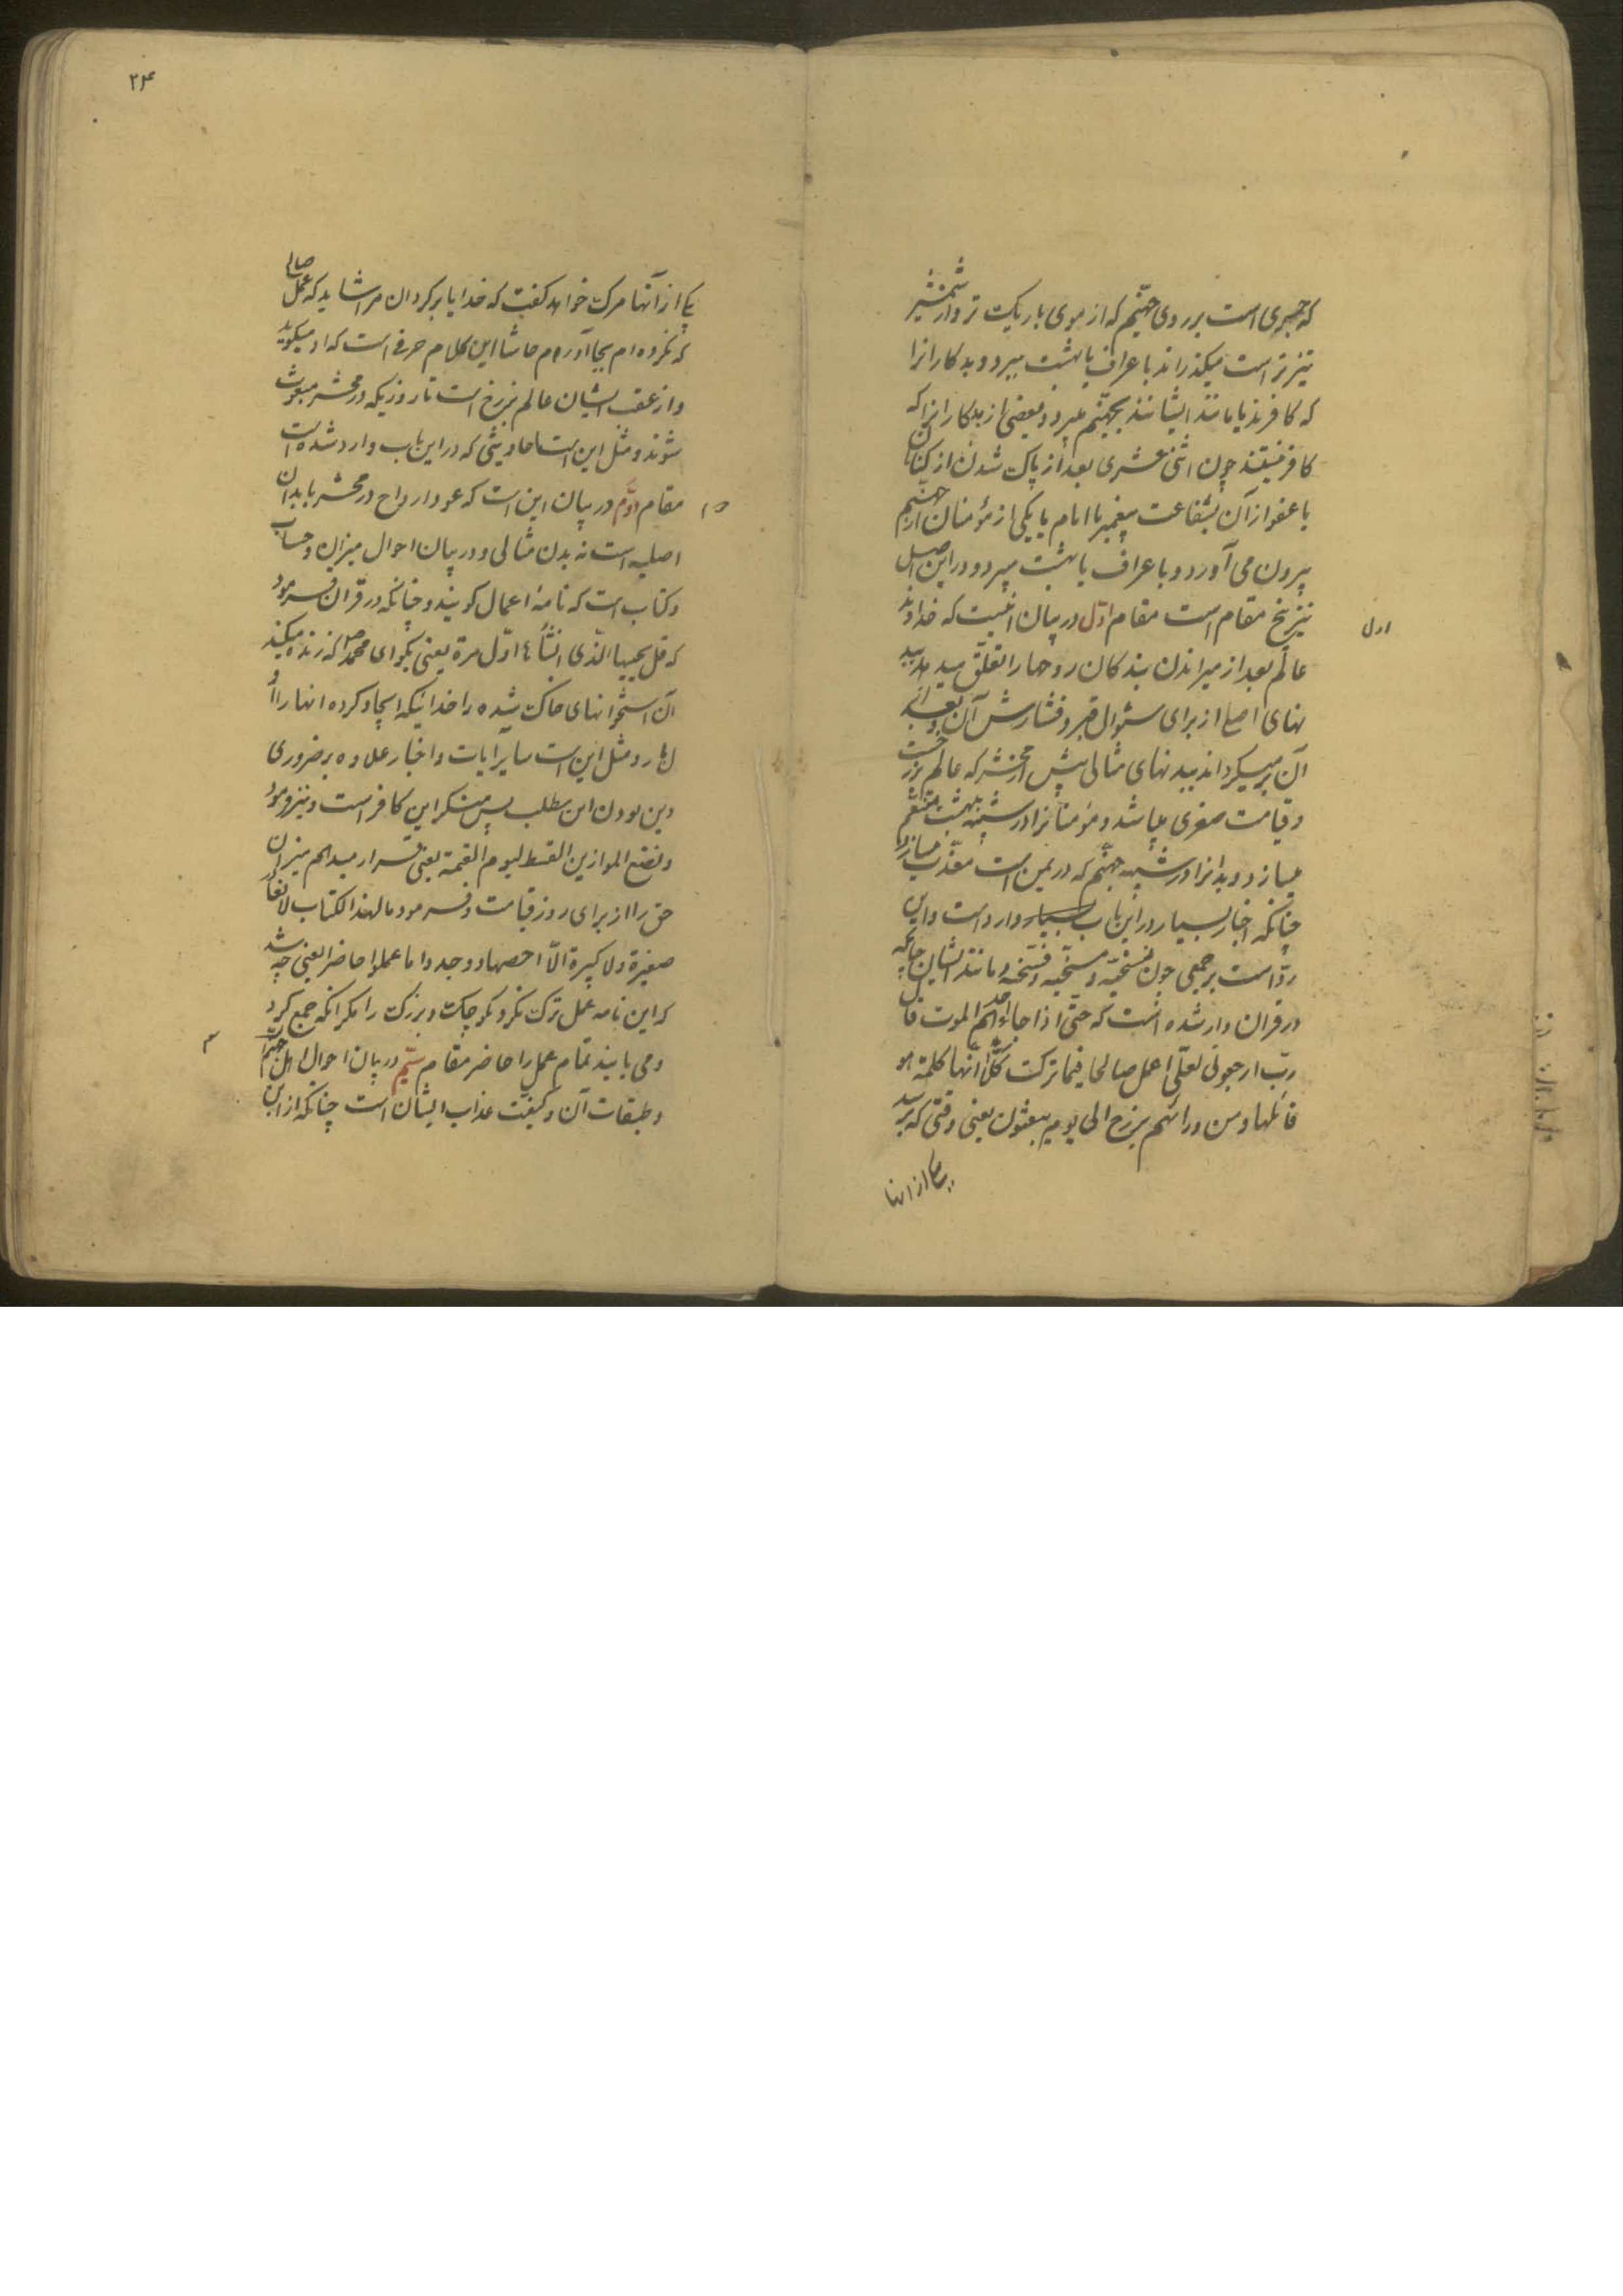 که جسری است بر روی جهنم که از موی باریک تر و از شمشیر
تیزتر است میکذراند باعراف یا بهشت میبرد و بدکارانرا
که کافرند یا مانند ایشانند بجهنم میبرد و بعضی از بدکارانرا که
کافر نیستند چون اثنی عشری بعد از پاک شدن از کناهان
یا عفو از آن بشفاعت پیغمبر یا امام یا یکی از مؤمنان از جهنم
بیرون می آورد و باعراف یا بهشت میبرد و در این اصل
نیز پنج مقام است مقام اول در بیان اینست که خداوند
اول
عالم بعد از میراندن بندکان روحها را تعلق میدهد ببد
نهای اصلی از برای سئوال قبر و فشارش آن و بعد از
آن برمیکرداند ببدنهای مثالی پیش از محشر که عالم برزخست
و قیامت صغری میباشد و مؤمنانرا در شبیه بهشت متنعم
میسازد و بدانرا در شبیه جهنم که در یمن است معذب میسازد
چنانکه اخبار بسیار در این باب بسیار وارد است و این
رد است بر جمعی چون نسخیه و مسخیه و فسخیه و مانند ایشان چنانکه
در قران وارد شده است که حتی اذا جاء احدهم الموت قال
رب ارجعونی لعلی اعمل صالحا فیما ترکت کلا انها کلمة هو
قائلها و من ورائهم برزخ الی یوم یبعثون یعنی وقتی که برسد
یکی از انها
۲۴
یکی از آنها مرک خواهد کفت که خدایا برکردان مرا شاید که عمل صالحی
که نکرده ام بجا آورم حاشا این کلام حرفی است که او میکوید
و از عقب ایشان عالم برزخ است تا روزیکه در محشر مبعوث
شوند و مثل این است احادیثی که در این باب وارد شده است
مقام دوم در بیان این است که عود ارواح در محشر بابدان
۲م
اصلیه است نه بدن مثالی و در بیان احوال میزان و حساب
و کتاب است که نامهٔ اعمال کویند و چنانکه در قران فرمود
که قل یحییها الذی انشأها اول مرة یعنی بکو ای محمد ص که زنده میکند
آن استخوانهای خاک شده را خدائیکه ایجاد کرده انها را او
ل بار و مثل این است سایر ایات و اخبار علاوه بر ضروری
دین بودن این مطلب پس منکر این کافر است و نیز فرمود
و نضع الموازین القسط لیوم القیمة یعنی قرار میدهم میزان
حق را از برای روز قیامت و فرمود ما لهذا الکتاب لا یغادر
صغیرة و لا کبیرة الا احصها و وجدوا ما عملوا حاضرا یعنی چه شد
که این نامه عمل ترک نکرد کوچک و بزرک را مکر انکه جمع کرد
و می یابند تمام عمل را حاضر مقام سیم در بیان احوال اهل جهنم
۳
و طبقات آن و کیفیت عذاب ایشان است چنانکه از این